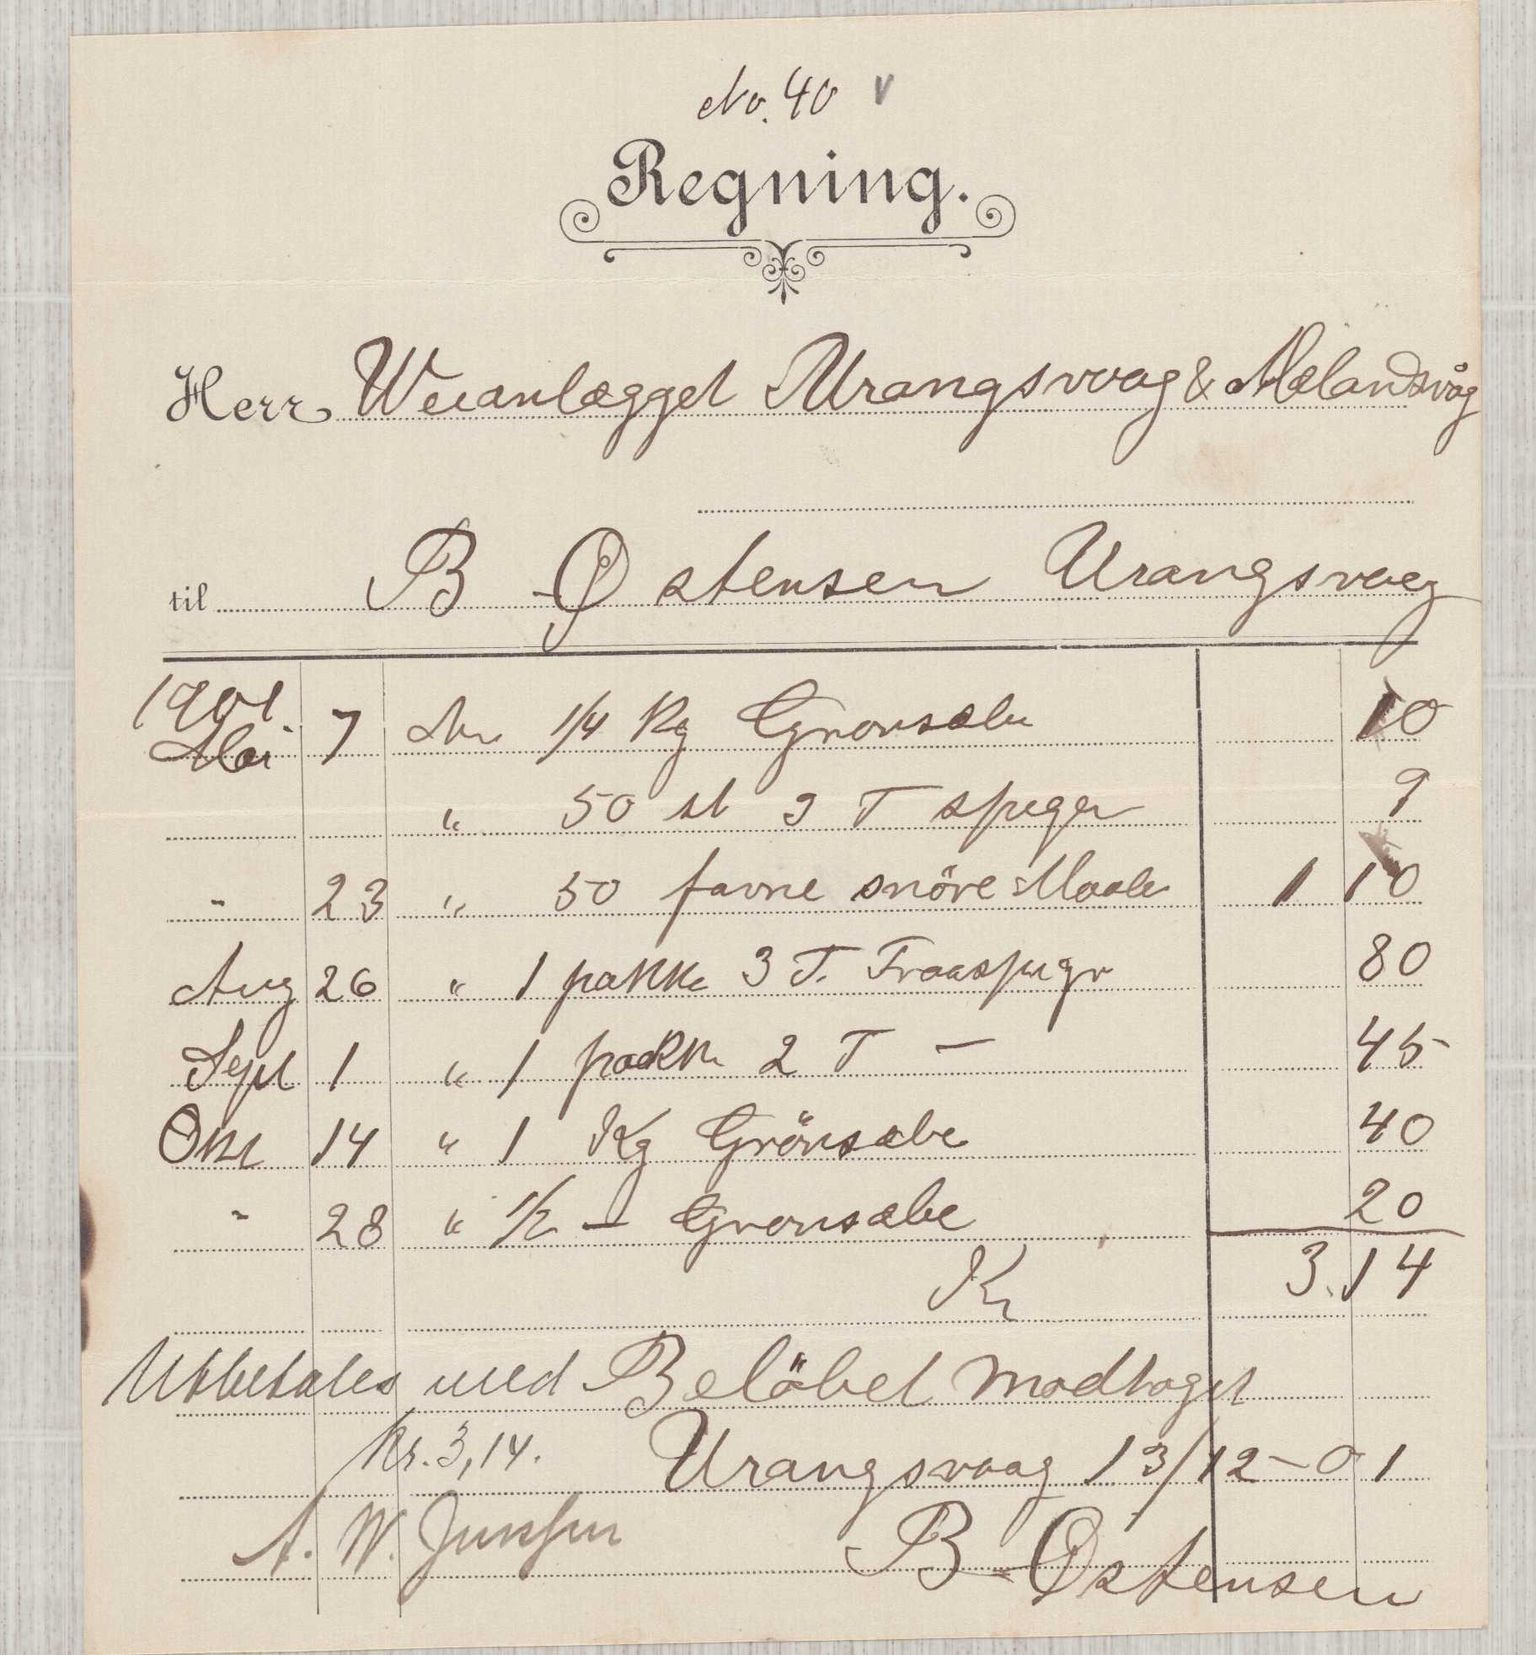 No. 40 v
Regning.
Herr Veianlægget Urangsvaag & Mælandsvåg
til B Østensen Urangsvaag
1901.
Mai 7 An 1/4 Kg Grønsæbe 10
" 50 st 3 T spiger 9
" 23 " 50 favne snöre Maale 1 10
Aug 26 " 1 pakke 3 T. Traaspiger 80
Sept 1 " 1 pakke 2 T — 45
Okt 14 " 1 Kg Grönsæbe 40
" 28 " 1/2 — Gronsæbe 20
Kr 3.14
Utbetales med Belöbet modtaget
Kr. 3,14. Urangsvaag 13/12-01
A. W. B Østensen